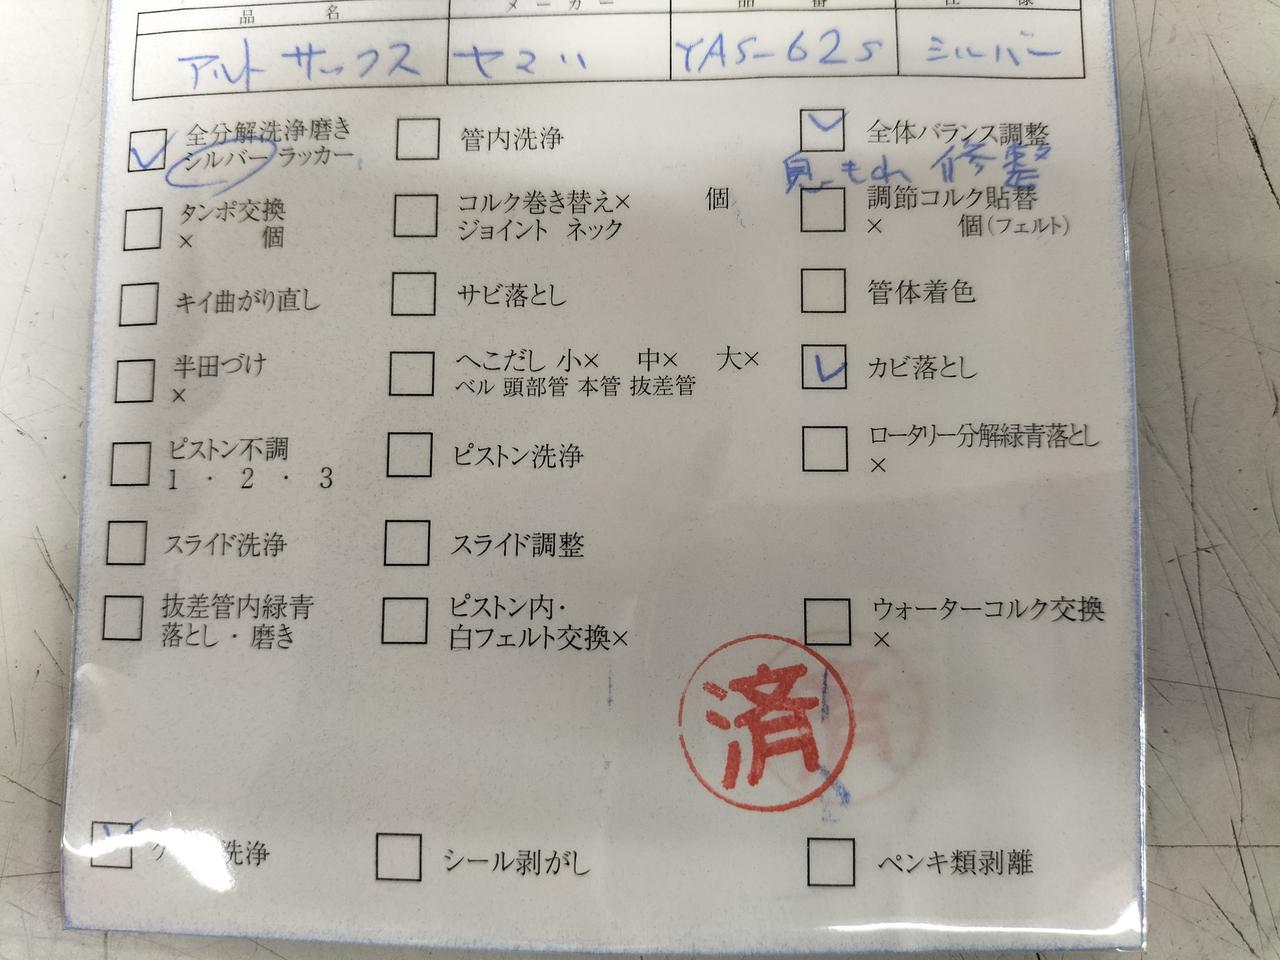 品 名 メーカー 品 番 仕 様
アルトサックス ヤマハ YAS-62S シルバー
全分解洗浄磨き
シルバー ラッカー
管内洗浄
全体バランス調整
息もれ 修整
タンポ交換
× 個
コルク巻き替え× 個
ジョイント ネック
調節コルク貼替
× 個(フェルト)
キイ曲がり直し
サビ落とし
管体着色
半田づけ
×
へこだし 小× 中× 大×
ベル 頭部管 本管 抜差管
カビ落とし
ピストン不調
1 ・ 2 ・ 3
ピストン洗浄
ロータリー分解緑青落とし
×
スライド洗浄
スライド調整
抜差管内緑青
落とし・磨き
ピストン内・
白フェルト交換×
ウォーターコルク交換
×
済
洗浄
シール剥がし
ペンキ類剥離